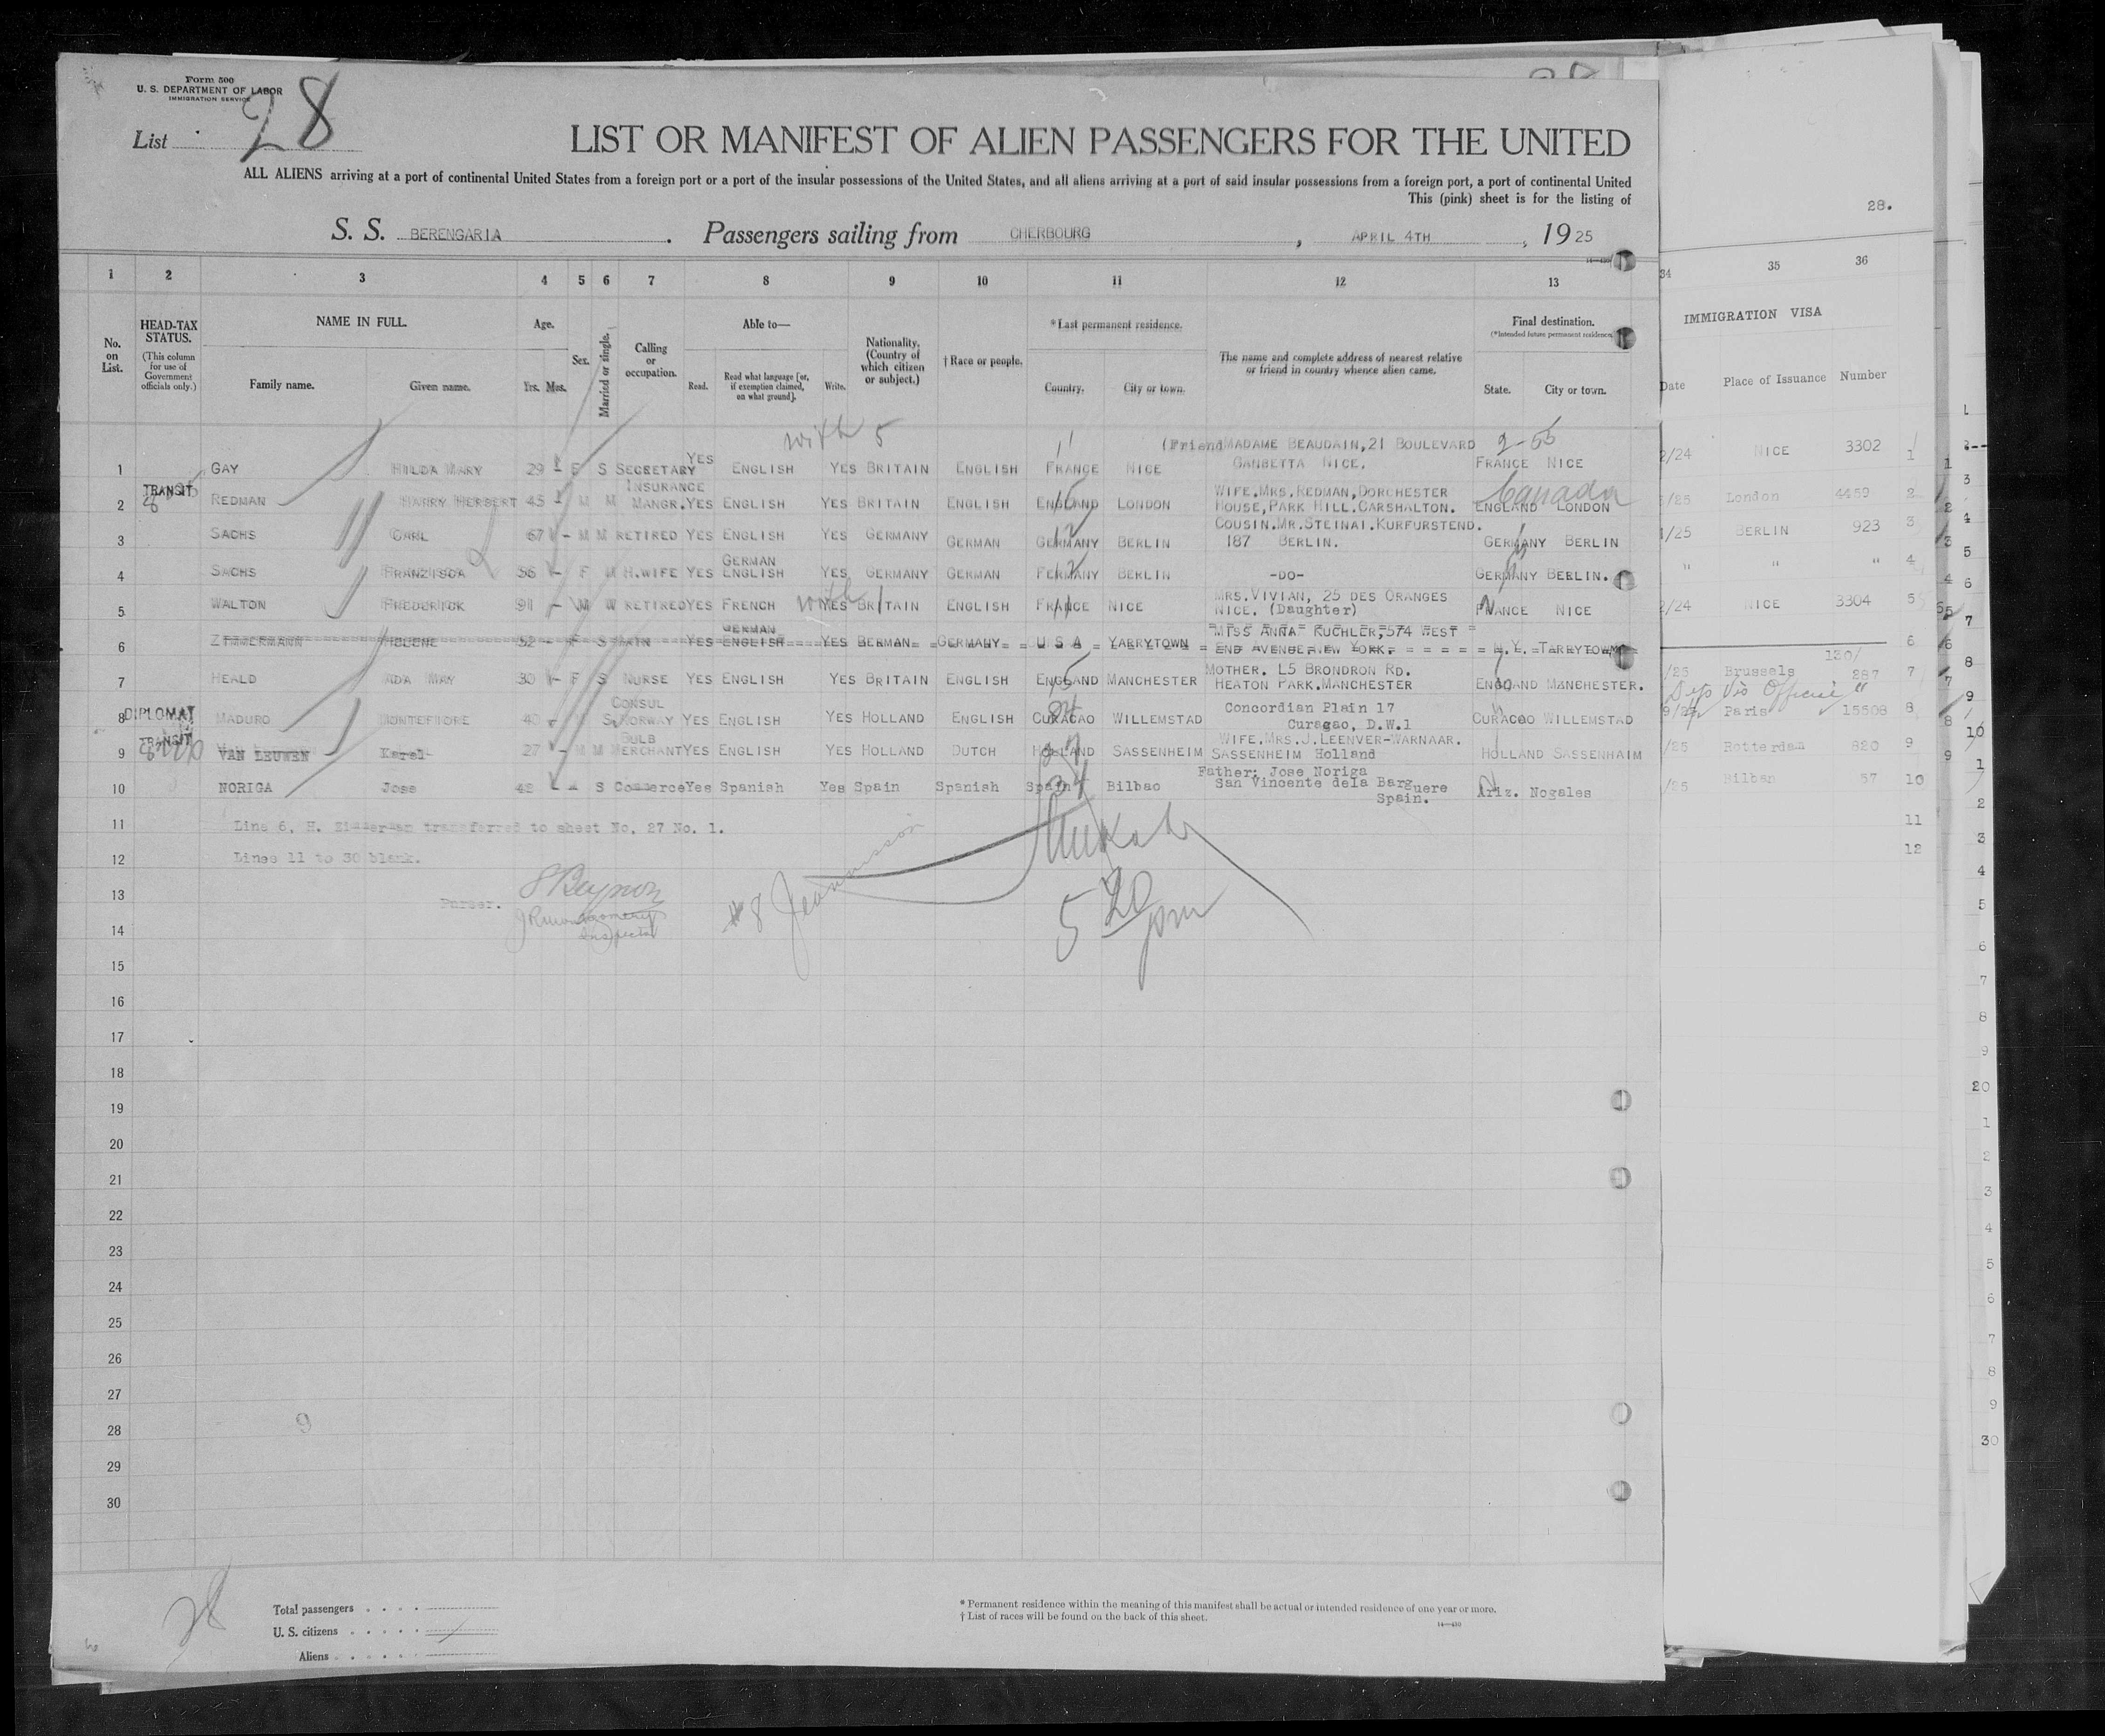 Form 500
U. S. DEPARTMENT OF LABOR
IMMIGRATION SERVICE
List 28
LIST OR MANIFEST OF ALIEN PASSENGERS FOR THE UNITED
ALL ALIENS arriving at a port of continental United States from a foreign port or a port of the insular possessions of the United States, and all aliens arriving at a port of said insular possessions from a foreign port, a port of continental United
This (pink) sheet is for the listing of
28.
S. S. BERENGARIA. Passengers sailing from CHERBOURG, APRIL 4TH, 1925
1 2 3 4 5 6 7 8 9 10 11 12 13 34 35 36
No. on List.
HEAD-TAX STATUS.
(This column for use of Government officials only.)
NAME IN FULL.
Family name. Given name.
Age.
Yrs. Mos.
Sex.
Married or single.
Calling or occupation.
Able to—
Read. Read what language [or, if exemption claimed, on what ground]. Write.
Nationality. (Country of which citizen or subject.)
† Race or people.
*Last permanent residence.
Country. City or town.
The name and complete address of nearest relative or friend in country whence alien came.
Final destination.
(*Intended future permanent residence)
State. City or town.
IMMIGRATION VISA
Date Place of Issuance Number
with 5
1 GAY HILDA MARY 29 F S SECRETARY YES ENGLISH YES BRITAIN ENGLISH FRANCE NICE (Friend MADAME BEAUDAIN, 21 BOULEVARD GAMBETTA NICE. FRANCE NICE 2/24 NICE 3302 1
TRANSIT
2 REDMAN HARRY HERBERT 45 M M INSURANCE MANGR. YES ENGLISH YES BRITAIN ENGLISH ENGLAND LONDON WIFE. MRS. REDMAN, DORCHESTER HOUSE, PARK HILL. CARSHALTON. Canada ENGLAND LONDON /25 London 4459 2
3 SACHS CARL 67 M M RETIRED YES ENGLISH YES GERMANY GERMAN GERMANY BERLIN COUSIN. MR. STEINAI. KURFURSTEND. 187 BERLIN. GERMANY BERLIN 1/25 BERLIN 923 3
4 SACHS FRANZISCA 56 F M H.WIFE YES GERMAN ENGLISH YES GERMANY GERMAN FERMANY BERLIN -DO- GERMANY BERLIN. " " " 4
5 WALTON FREDERICK 91 M W RETIRED YES FRENCH with YES BRITAIN ENGLISH FRANCE NICE MRS. VIVIAN, 25 DES ORANGES NICE. (Daughter) FRANCE NICE 2/24 NICE 3304 5
6 ZIMMERMANN HELENE 52 F S YES GERMAN ENGLISH YES BERMAN GERMANY U S A YARRYTOWN MISS ANNA KUCHLER, 574 WEST END AVENUE NEW YORK. N.Y. TARRYTOWN 6
7 HEALD ADA MAY 30 F S NURSE YES ENGLISH YES BRITAIN ENGLISH ENGLAND MANCHESTER MOTHER. L5 BRONDRON RD. HEATON PARK. MANCHESTER ENGLAND MANCHESTER. /25 Brussels 130/ 287 7
DIPLOMAT
8 MADURO MONTEFIORE 40 S CONSUL NORWAY YES ENGLISH YES HOLLAND ENGLISH CURACAO WILLEMSTAD Concordian Plain 17 Curaçao, D.W.1 CURACAO WILLEMSTAD Paris 15508 8
TRANSIT
9 VAN LEUWEN Karel 27 M M BULB MERCHANT YES ENGLISH YES HOLLAND DUTCH HOLLAND SASSENHEIM WIFE. MRS. J. LEENVER-WARNAAR. SASSENHEIM Holland HOLLAND SASSENHAIM /25 Rotterdam 820 9
10 NORIGA Jose 42 S Commerce Yes Spanish Yes Spain Spanish Spain Bilbao Father: Jose Noriga San Vincente dela Barguere Spain. Ariz. Nogales /25 Bilbao 57 10
11 Line 6, H. Zimmerman transferred to sheet No. 27 No. 1. 11
12 Lines 11 to 30 blank. 12
13 Purser. S Beynon
14 JR Montgomery Inspector
#8
5 20 pm
15
16
17
18
19
20
21
22
23
24
25
26
27
28
29
30
9
28
Total passengers
U. S. citizens
Aliens
* Permanent residence within the meaning of this manifest shall be actual or intended residence of one year or more.
† List of races will be found on the back of this sheet.